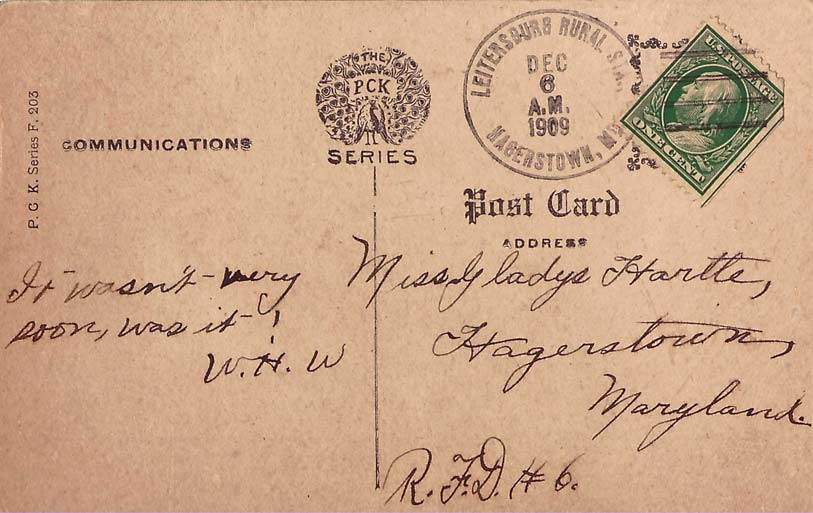 P. C K. Series F. 203
COMMUNICATIONS
THE
PCK
SERIES
LEITERSBURG RURAL STA.
DEC
6
A.M.
1909
HAGERSTOWN, MD.
U.S. POSTAGE
ONE CENT
Post Card
ADDRESS
It wasn't very
soon, was it!
W. H. W
Miss Gladys Hartle,
Hagerstown,
Maryland.
R.F.D. # 6.